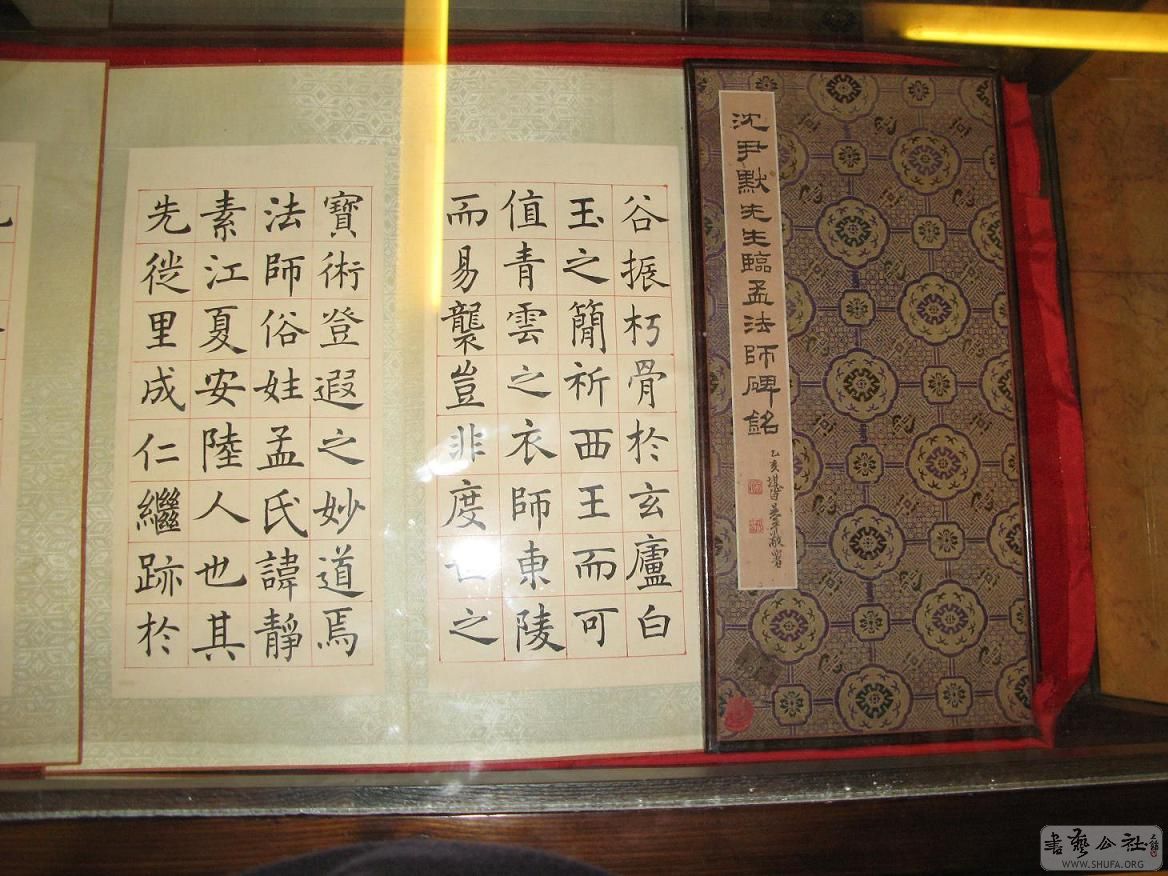 沈尹默先生臨孟法師碑銘
乙亥
署
谷振朽骨於玄廬白
玉之簡祈西王而可
值青雲之衣師東陵
而易襲豈非度世之
寶術登遐之妙道焉
法師俗姓孟氏諱靜
素江夏安陸人也其
先徙里成仁繼跡於
書藝公社
WWW.SHUFA.ORG